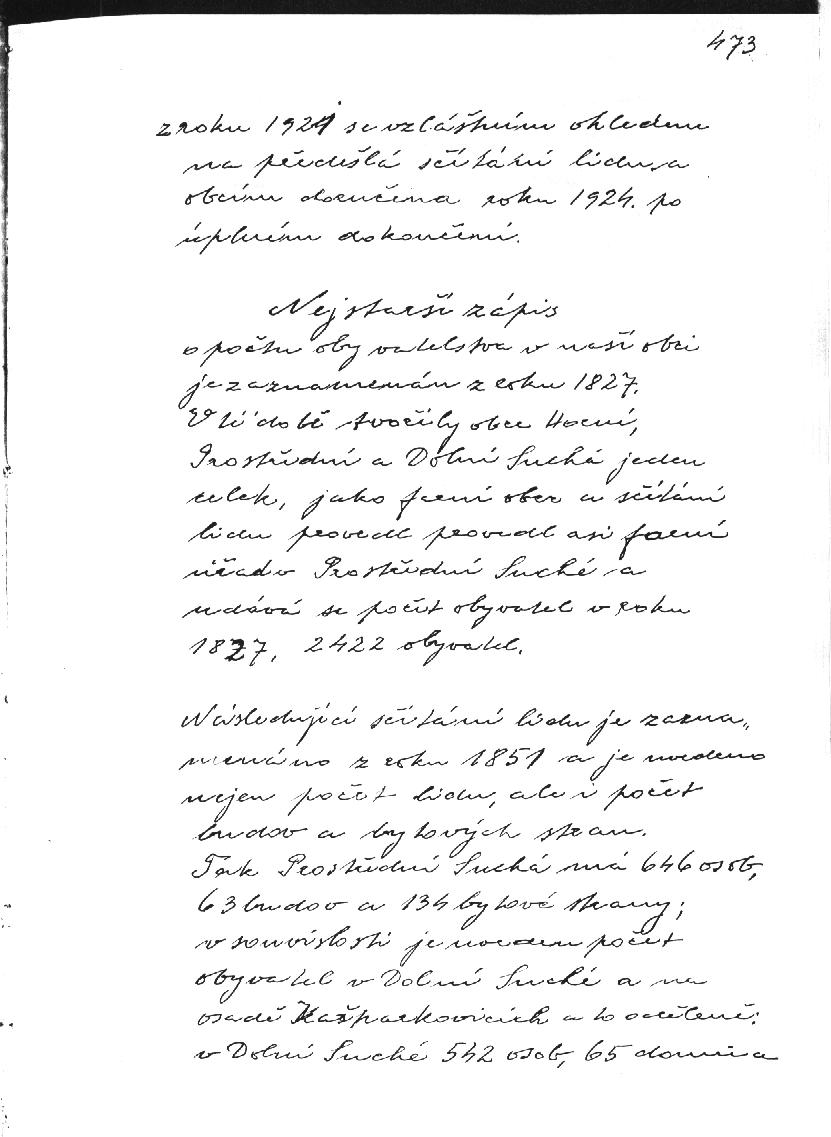 473
z roku 1921 se vzláštním ohledem
na předešlá sčítání lidu, a
obcím doručena roku 1924. po
úplném dokončení.
Nejstarší zápis
o počtu obyvatelstva v naší obci
je zaznamenán z roku 1827.
V té době tvořily obce Horní,
Prostřední a Dolní Suchá jeden
celek, jako farní obec a sčítání
lidu provedl provedl asi farní
úřad v Prostřední Suché a
udává se počet obyvatel v roku
1827, 2422 obyvatel.
Následující sčítání lidu je zazna„
menáno z roku 1851 a je uvedeno
nejen počet lidu, ale i počet
budov a bytových stran.
Tak Prostřední Suchá má 646 osob,
63 budov a 134 bytové strany;
v souvislosti je uveden počet
obyvatel v Dolní Suché a na
osadě Kašparkovicích a to odděleně:
v Dolní Suché 542 osob, 65 domů a